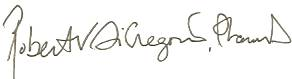 Robert V DiGregorio, PharmD